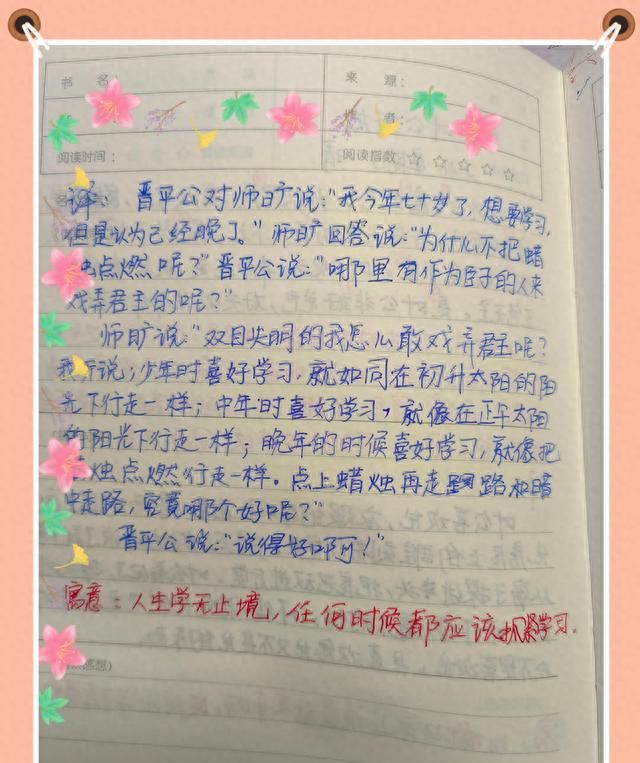 书 名 来 源：
者：
阅读时间： 阅读指数 ☆ ☆ ☆ ☆ ☆
译： 晋平公对师旷说：“我今年七十岁了，想要学习，
但是认为已经晚了。”师旷回答说：“为什么不把蜡
点燃呢？”晋平公说：“哪里有作为臣子的人来
戏弄君主的呢？”
师旷说：“双目失明的我怎么敢戏弄君主呢？
我听说；少年时喜好学习，就如同在初升太阳的阳
光下行走一样；中年时喜好学习，就像在正午太阳
的阳光下行走一样；晚年的时候喜好学习，就像把
烛点燃行走一样。点上蜡烛再走路和暗
中走路，究竟哪个好呢？”
晋平公说：“说得好啊！”
寓意：人生学无止境，任何时候都应该抓紧学习.
感想)